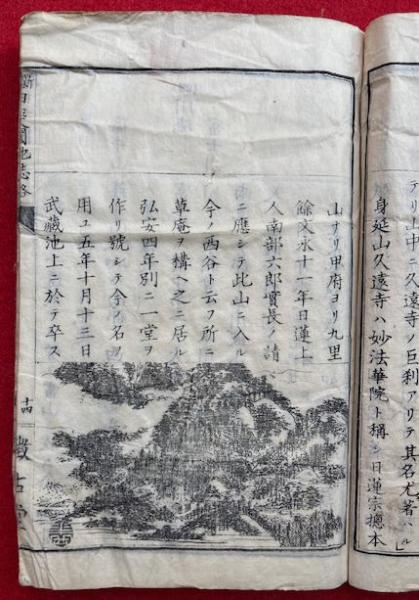 テリ山中ニ久遠寺ノ巨刹アリテ其名尤著ハル
身延山久遠寺ハ妙法華院ト稱シ日蓮宗摠本
山ナリ甲府ヨリ九里
餘文永十一年日蓮上
人南部六郎實長ノ請
ニ應シテ此山ニ入ル
今ノ西谷ト云フ所ニ
草庵ヲ構ヘ之ニ居ル
弘安四年別ニ一堂ヲ
作リ號シテ今ノ名ヲ
用ユ五年十月十三日
武藏池上ニ於テ卒ス
地誌畧
十四